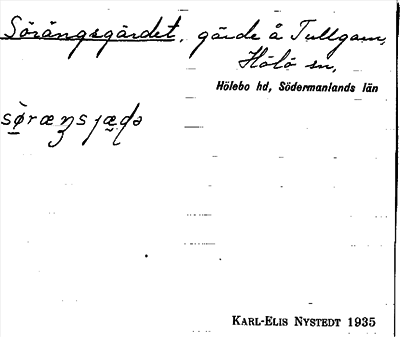 Sörängsgärdet, gärde å Tullgarn,
Hölö sn,
Hölebo hd, Södermanlands län
KARL-ELIS NYSTEDT 1935